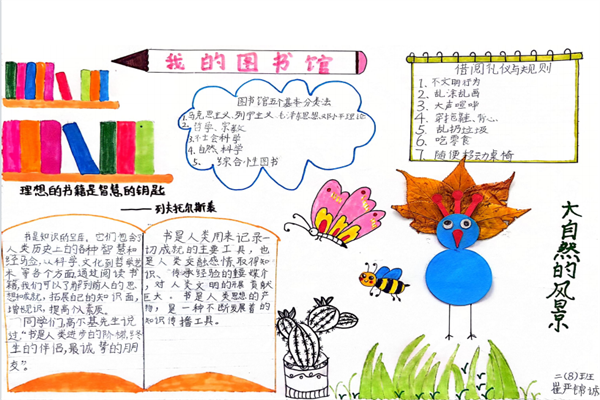 我的图书馆
图书馆五个基本分类法
1.马克思主义、列宁主义、毛泽东思想、邓小平理论
2. 哲学、宗教
3.社会科学
4.自然科学
5. 综合性图书
借阅礼仪与规则
1. 不文明行为
2. 乱涂乱画
3. 大声喧哗
4. 穿拖鞋、背心
5. 乱扔垃圾
6. 吃零食
7. 随便移动桌椅
理想的书籍是智慧的钥匙
——列夫托尔斯泰
书是知识的宝库，它们包含了
人类历史上的各种智慧和
经验，从科学、文化到哲学艺
术等各个方面，通过阅读书
籍，我们可以了解到前人的思
想和成就，拓展自己的知识面，
增长见识，提高修养素质。
同学们，高尔基先生说
过“书是人类进步的阶梯，终
生的伴侣，最诚挚的朋
友”。
书是人类用来记录一
切成就的主要工具，也
是人类交融感情，取得知
识、传承经验的重要媒介
，对人类文明的开展贡献
巨大。书是人类思想的产
物，是一种不断发展着的
知识传播工具。
大自然的风景
二(8)班
崔